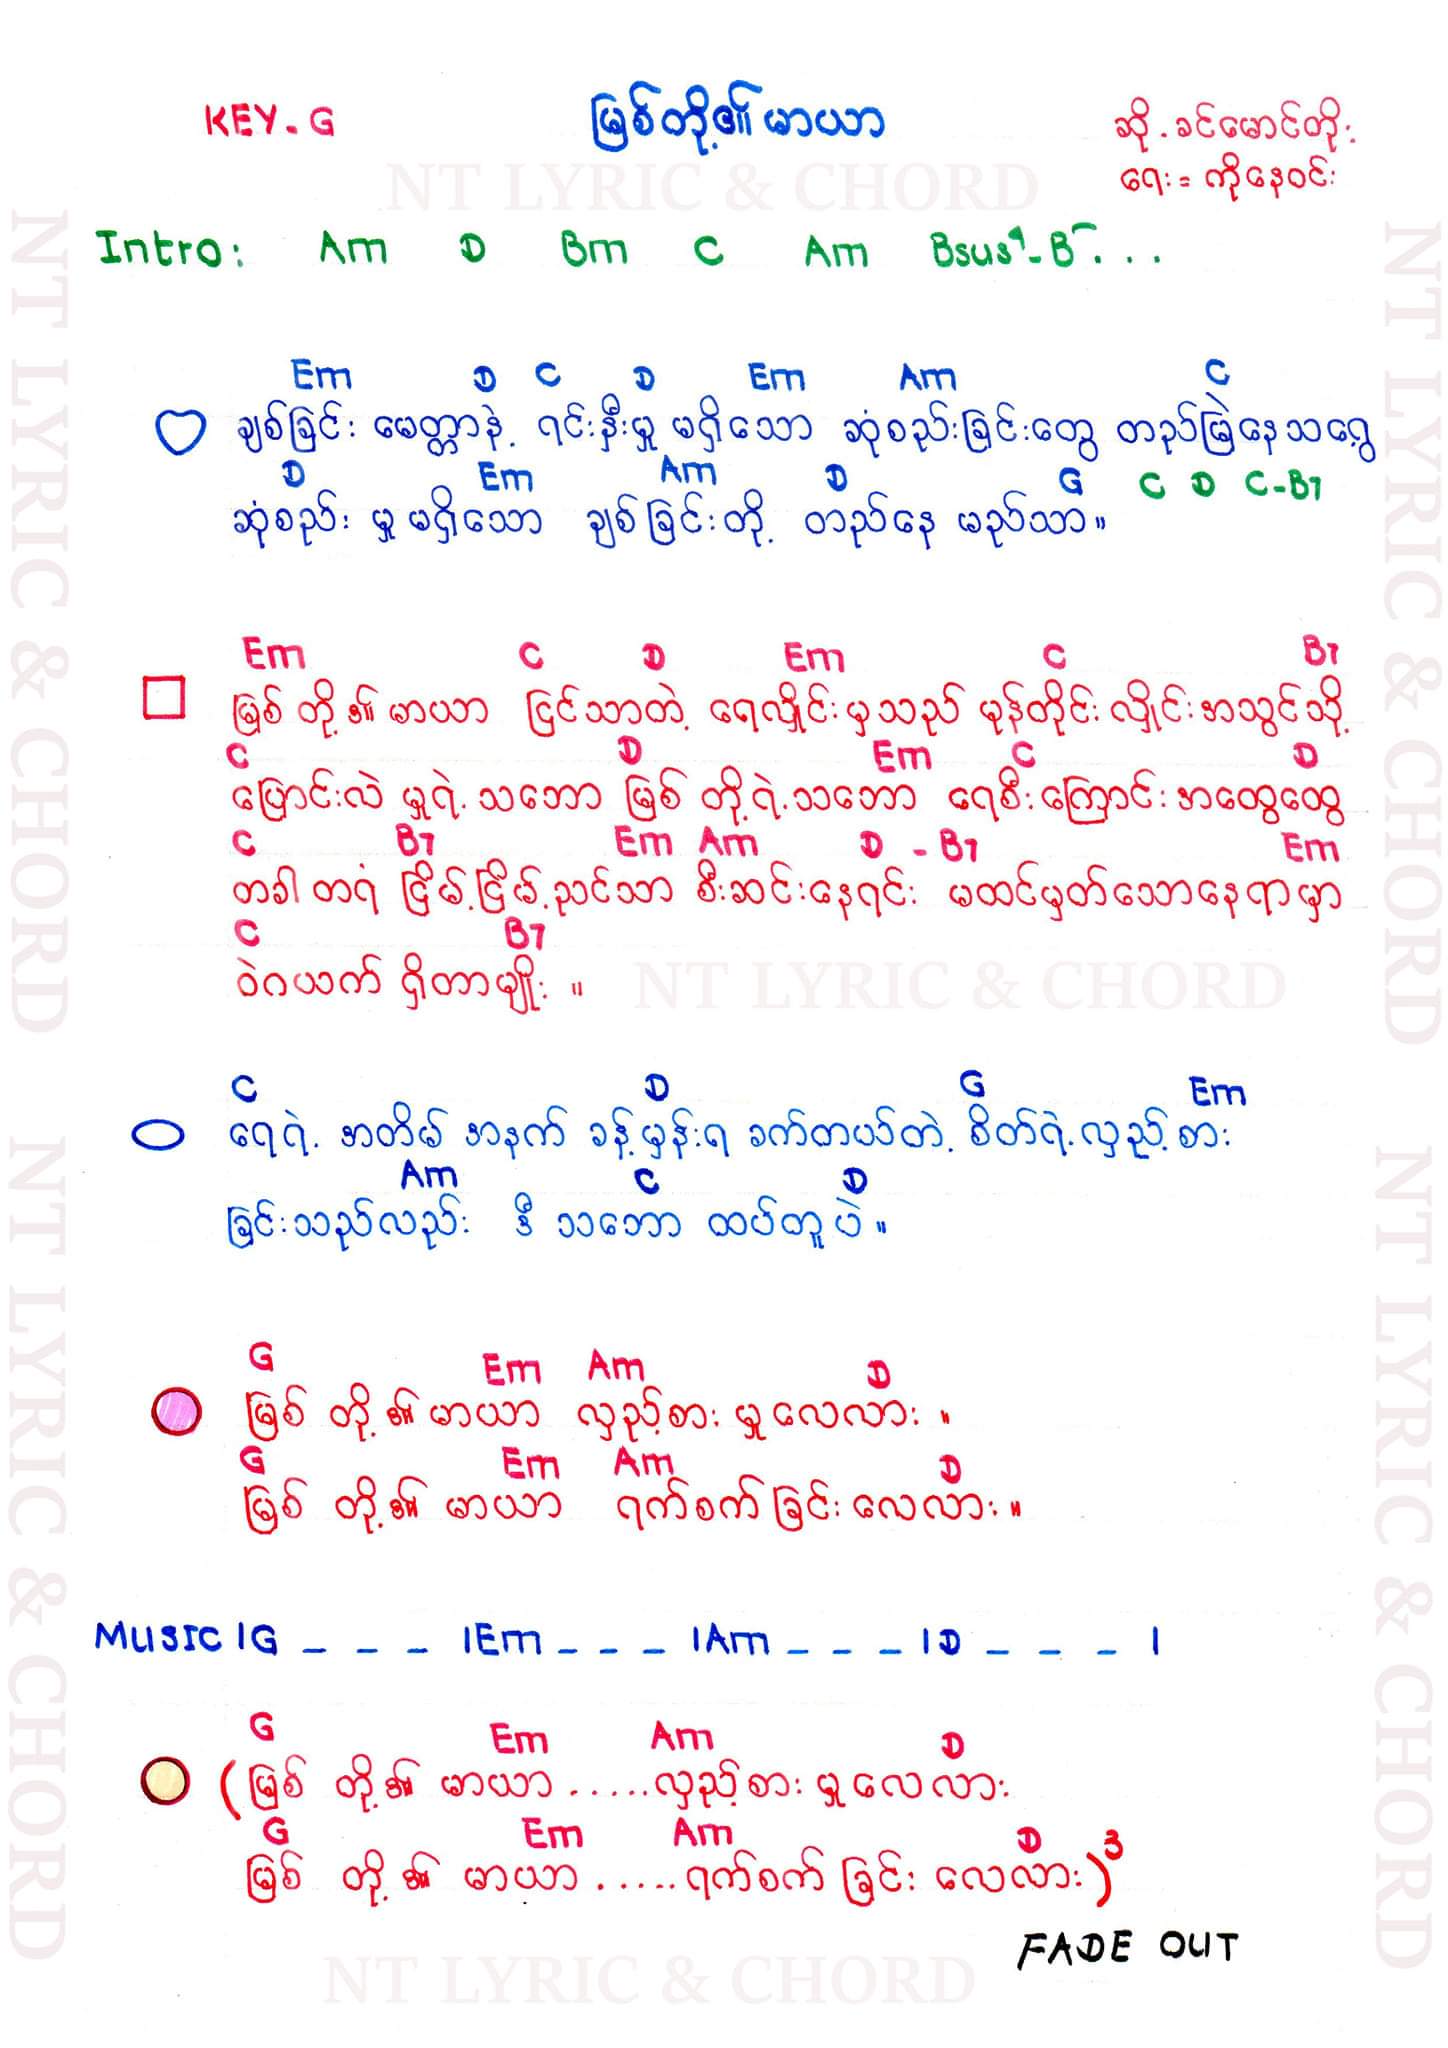 KEY - G
မြစ်တို့၏မာယာ
ဆို - ခင်မောင်တိုး
ရေး = ကိုနေဝင်း
NT LYRIC & CHORD
Intro: Am D Bm C Am Bsus4 - B - . . .
Em D C D Em Am C
ချစ်ခြင်း မေတ္တာနဲ့ ရင်းနှီးမှု မရှိသော ဆုံစည်းခြင်းတွေ တည်မြဲနေသရွေ့
D Em Am D G C D C-B7
ဆုံစည်း မှု မရှိသော ချစ်ခြင်းတို့ တည်နေ မည်သာ။
Em C D Em C B7
မြစ် တို့၏ မာယာ ငြင်သာတဲ့ ရေလှိုင်းမှသည် မုန်တိုင်း လှိုင်းအသွင်သို့
C D Em C D
ပြောင်းလဲ မှုရဲ့ သဘော မြစ် တို့ရဲ့သဘော ရေစီးကြောင်း အထွေထွေ
C B7 Em Am D - B7 Em
တခါ တရံ ငြိမ့်ငြိမ့်ညင်သာ စီးဆင်းနေရင်း မထင်မှတ်သောနေရာမှာ
C B7
ဝဲဂယက် ရှိတာမျိုး ။
NT LYRIC & CHORD
C D G Em
ရေရဲ့ အတိမ် အနက် ခန့်မှန်းရ ခက်တယ်တဲ့ စိတ်ရဲ့လှည့်စား
Am C D
ခြင်းသည်လည်း ဒီ သဘော ထပ်တူပဲ ။
G Em Am D
မြစ် တို့၏ မာယာ လှည့်စား မှုလေလား ။
G Em Am D
မြစ် တို့၏ မာယာ ရက်စက်ခြင်း လေလား ။
Music |G _ _ _ |Em _ _ _ |Am _ _ _ |D _ _ _ |
G Em Am D
(မြစ် တို့၏ မာယာ . . . . . လှည့်စား မှုလေလား
G Em Am D
မြစ် တို့၏ မာယာ . . . . . ရက်စက် ခြင်း လေလား)3
FADE OUT
NT LYRIC & CHORD
NT LYRIC & CHORD
NT LYRIC & CHORD
NT LYRIC & CHORD
NT LYRIC & CHORD